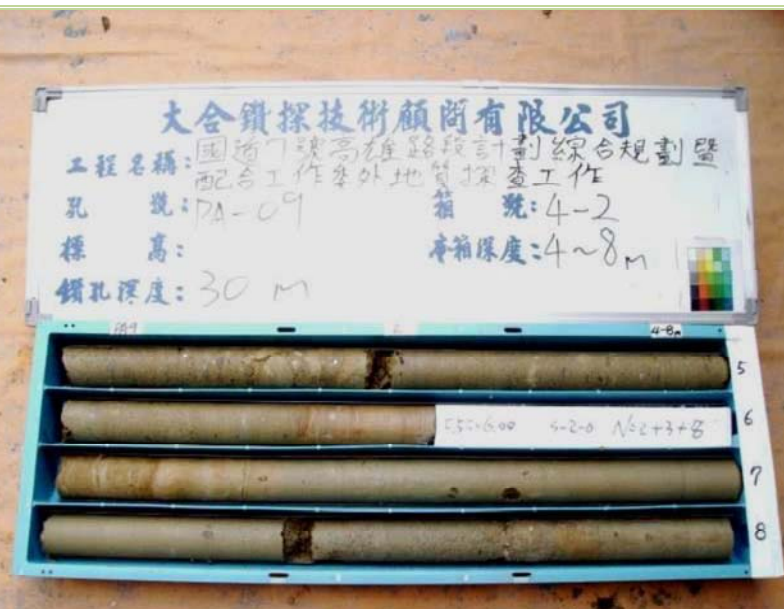 大合鑽探技術顧問有限公司
工程名稱:國道7號高雄路段計劃綜合規劃暨
配合工作委外地質探查工作
孔 號:PA-09 箱 號:4-2
標 高: 本箱深度:4~8m
鑽孔深度:30 m
PA9 2 4-8m
5
6
S-2-0 N=2+3+8
7
8